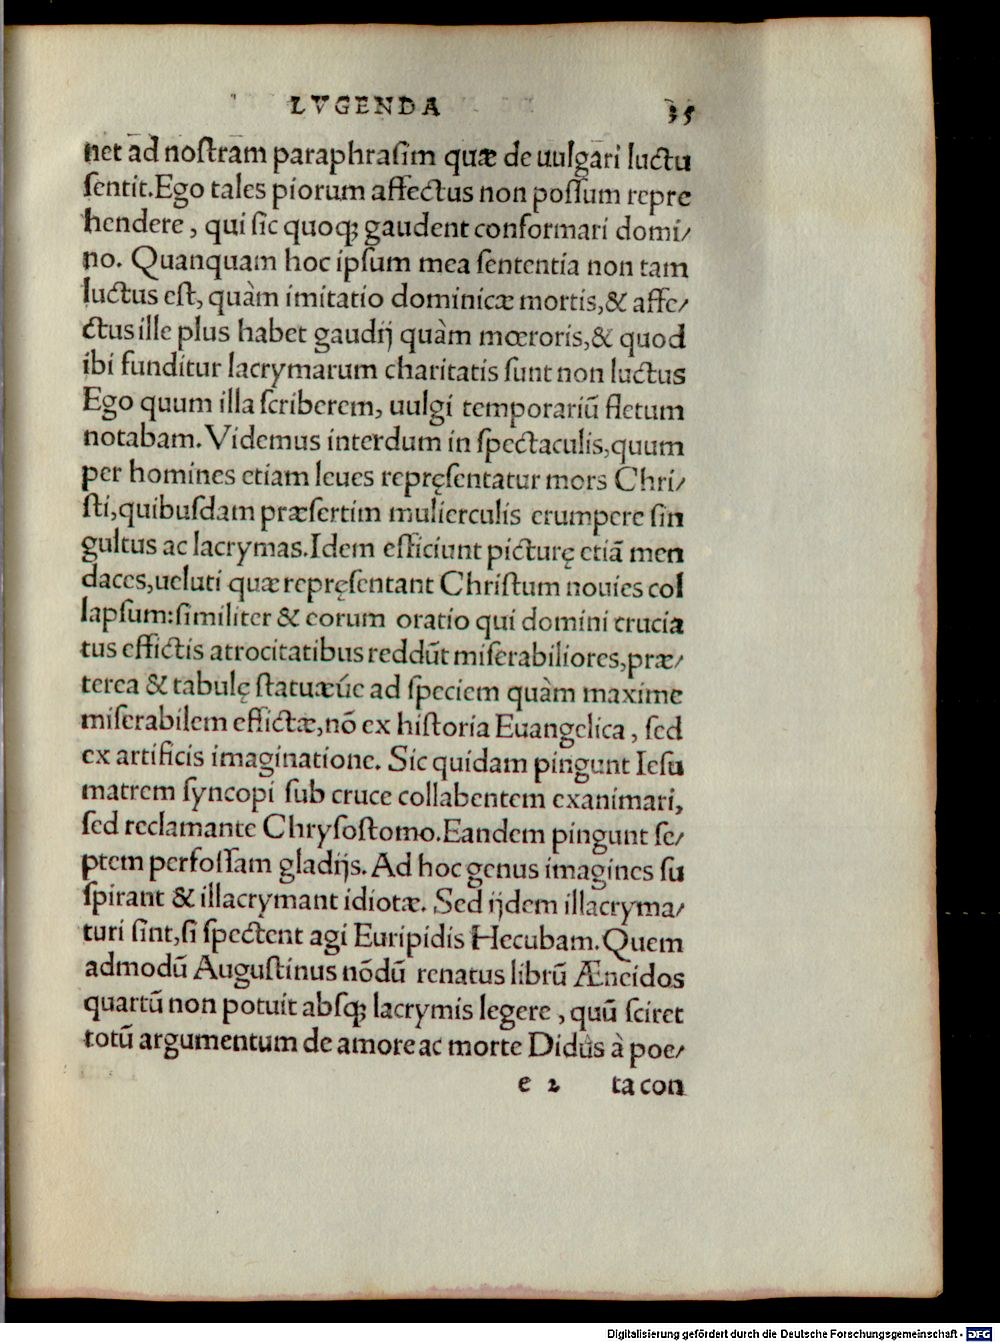 LVGENDA 35
net ad nostram paraphrasim quæ de uulgari luctu
sentit. Ego tales piorum affectus non possum repre
hendere, qui sic quoqꝫ gaudent conformari domi/
no. Quanquam hoc ipsum mea sententia non tam
luctus est, quàm imitatio dominicæ mortis, & affe/
ctus ille plus habet gaudij quàm mœroris, & quod
ibi funditur lacrymarum charitatis sunt non luctus
Ego quum illa scriberem, uulgi temporariũ fletum
notabam. Videmus interdum in spectaculis, quum
per homines etiam leues repręsentatur mors Chri/
sti, quibusdam præsertim mulierculis erumpere sin
gultus ac lacrymas. Idem efficiunt picturę etiã men
daces, ueluti quæ repręsentant Christum nouies col
lapsum: similiter & eorum oratio qui domini crucia
tus effictis atrocitatibus reddũt miserabiliores, præ/
terea & tabulę statuæúe ad speciem quàm maxime
miserabilem effictæ, nõ ex historia Euangelica, sed
ex artificis imaginatione. Sic quidam pingunt Iesu
matrem syncopi sub cruce collabentem exanimari,
sed reclamante Chrysostomo. Eandem pingunt se/
ptem perfossam gladijs. Ad hoc genus imagines su
spirant & illacrymant idiotæ. Sed ijdem illacryma/
turi sint, si spectent agi Euripidis Hecubam. Quem
admodũ Augustinus nõdũ renatus librũ Æneidos
quartũ non potuit absqꝫ lacrymis legere, quũ sciret
totũ argumentum de amore ac morte Didûs à poe/
e 2 ta con
Digitalisierung gefördert durch die Deutsche Forschungsgemeinschaft - DFG